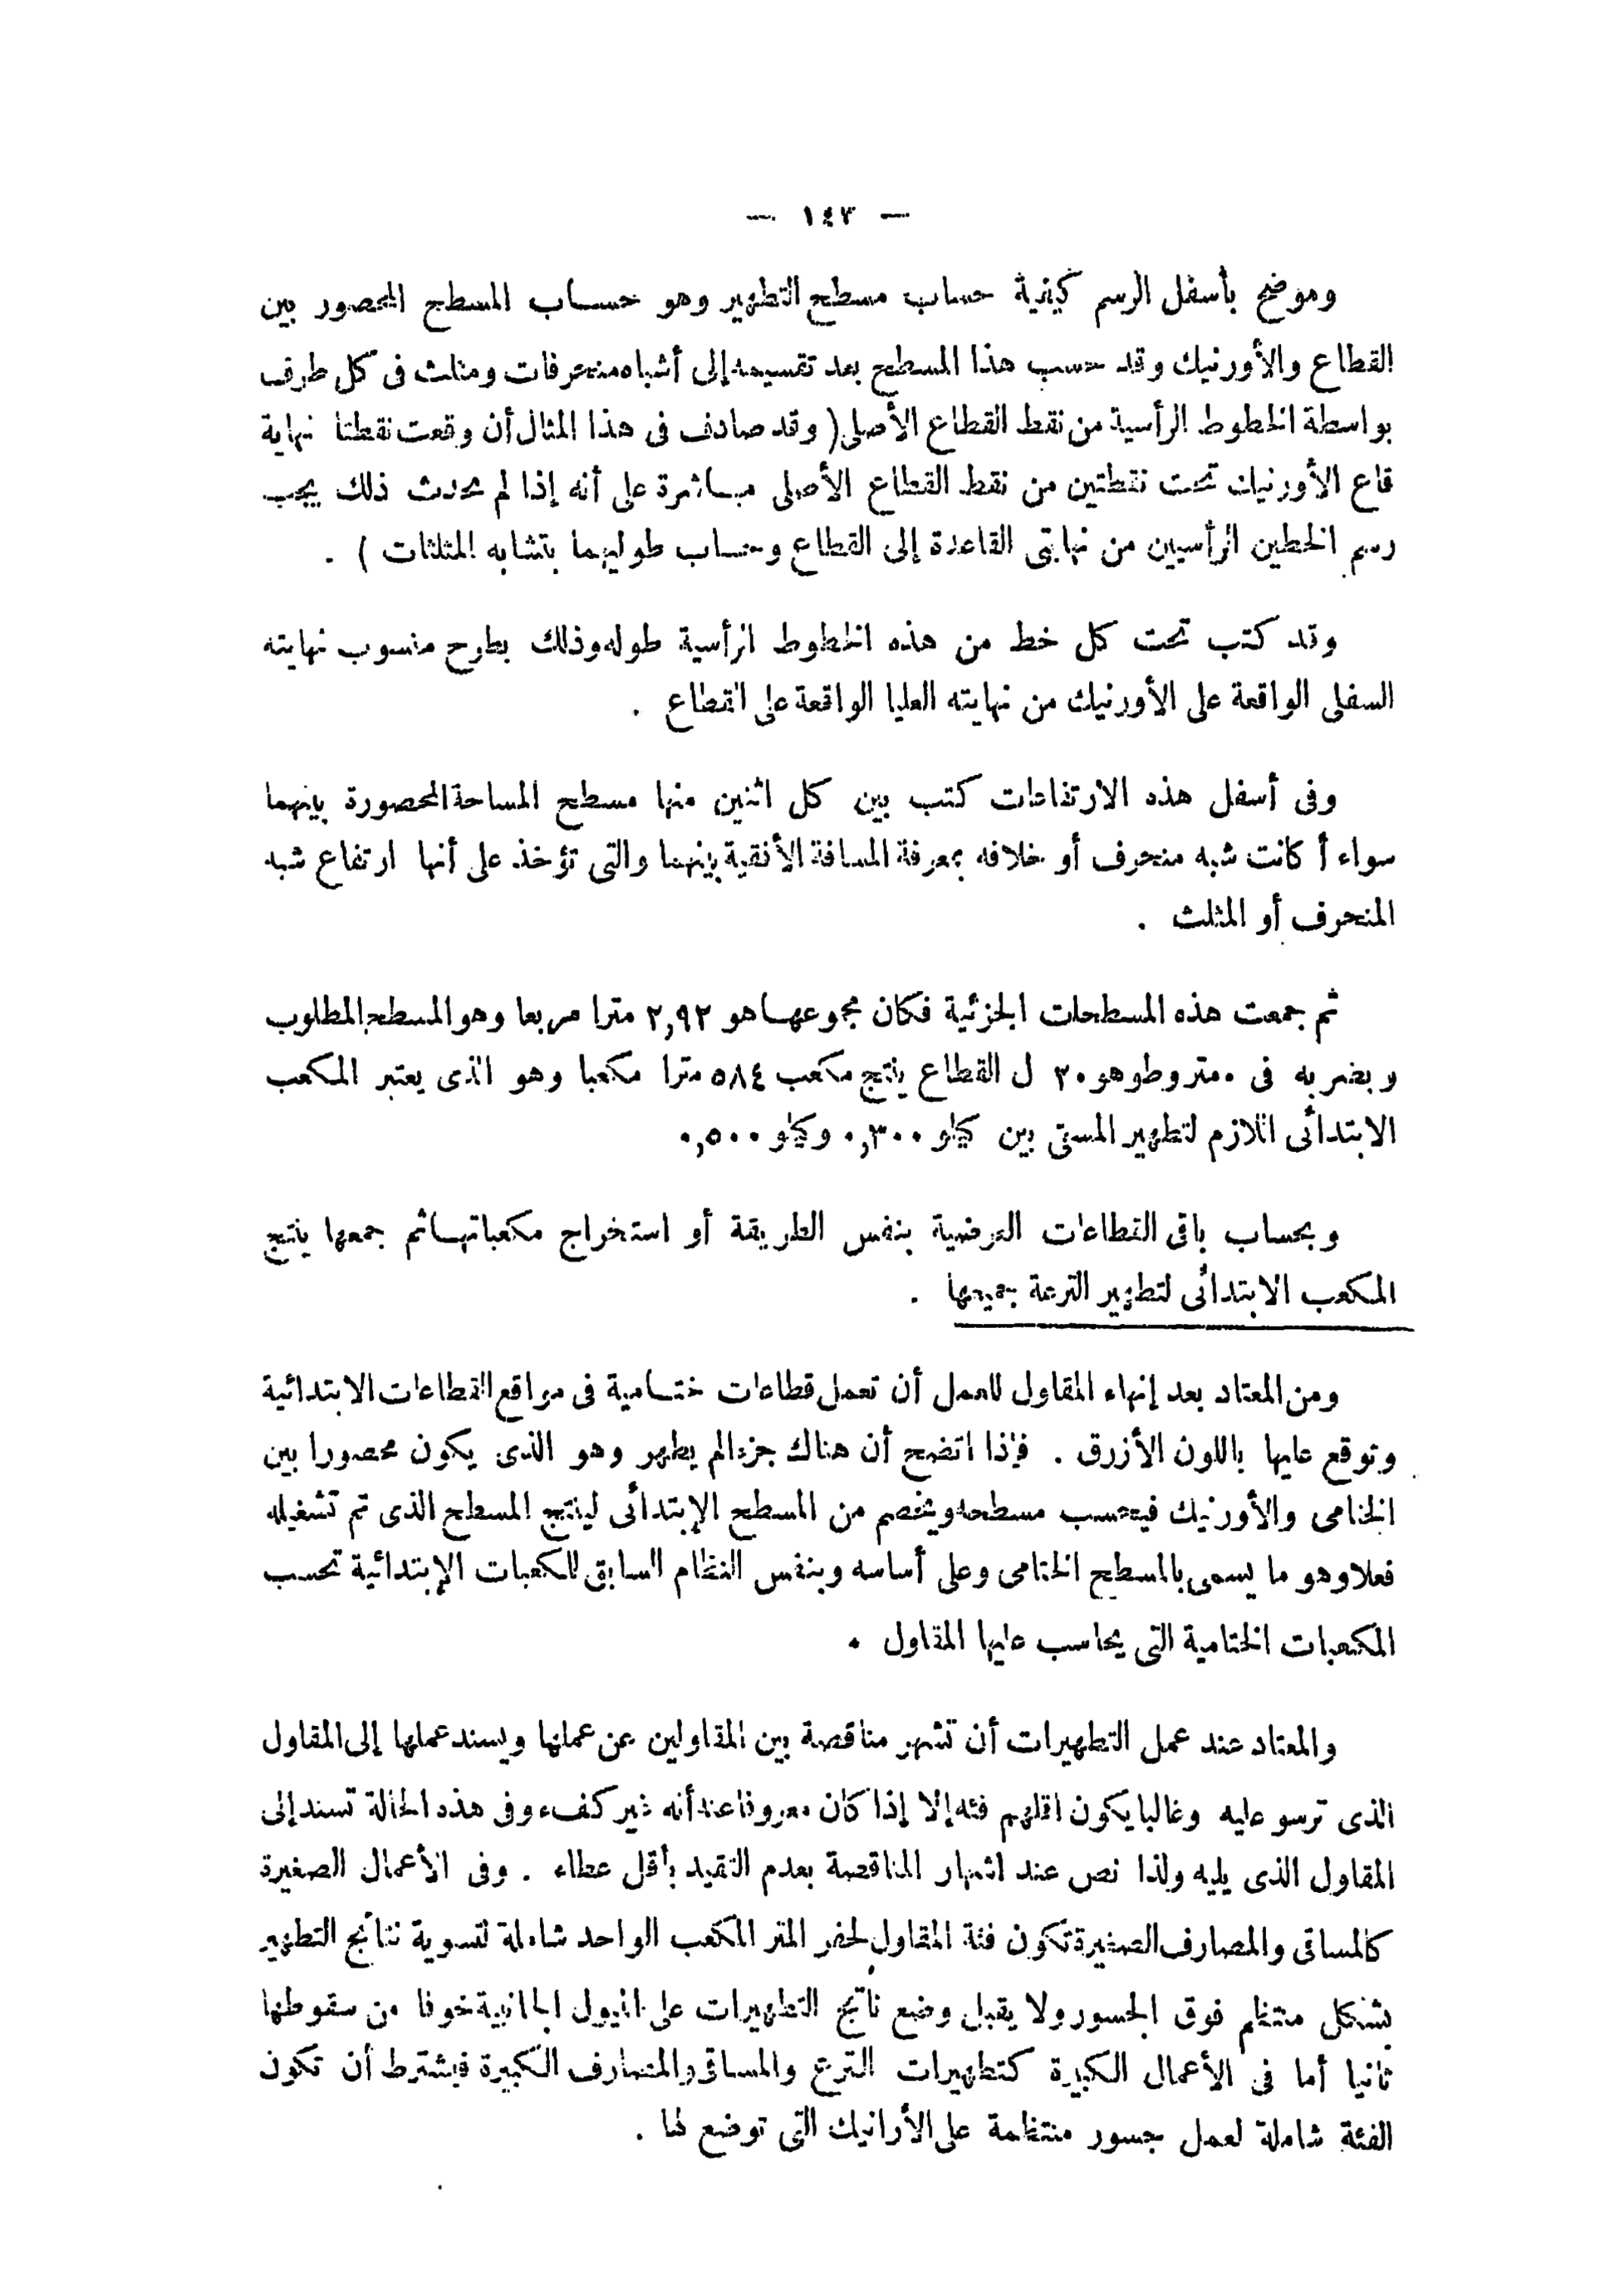 — ١٤٣ —
وموضح بأسفل الرسم كيفية حساب مسطح التطهير وهو حساب المسطح المحصور بين
القطاع والأورنيك وقد حسب هذا المسطح بعد تقسيمه إلى أشباه منحرفات ومثلث فى كل طرف
بواسطة الخطوط الرأسية من نقط القطاع الأصلى ( وقد صادف فى هذا المثال أن وقعت نقطتا نهاية
قاع الأورنيك تحت نقطتين من نقط القطاع الأصلى مباشرة على أنه إذا لم يحدث ذلك يجب
رسم الخطين الرأسيين من نهايتى القاعدة إلى القطاع وحساب طوليهما بتشابه المثلثات ) .
وقد كتب تحت كل خط من هذه الخطوط الرأسية طوله وذلك بطرح منسوب نهايته
السفلى الواقعة على الأورنيك من نهايته العليا الواقعة على القطاع .
وفى أسفل هذه الارتفاعات كتب بين كل اثنين منها مسطح المساحة المحصورة بينهما
سواء أ كانت شبه منحرف أو خلافه بمعرفة المسافة الأفقية بينهما والتى تؤخذ على أنها ارتفاع شبه
المنحرف أو المثلث .
ثم جمعت هذه المسطحات الجزئية فكان مجموعها هو ٢,٩٢ مترا مربعا وهو المسطح المطلوب
وبضربه فى ٠متر وطوهو٢٠ ل القطاع ينتج مكعب ٥٨٤ مترا مكعبا وهو الذى يعتبر المكعب
الابتدائى اللازم لتطهير المستى بين كيلو ٠,٣٠٠ وكيلو ٠,٥٠٠
وبحساب باقى القطاعات العرضية بنفس الطريقة أو استخراج مكعباتها ثم جمعها ينتج
المكعب الابتدائى لتطهير الترعة جميعها .
ومن المعتاد بعد إنهاء المقاول للعمل أن تعمل قطاعات ختامية فى مواقع القطاعات الابتدائية
وتوقع عليها باللون الأزرق . فإذا اتضح أن هناك جزءا لم يطهر وهو الذى يكون محصورا بين
الختامى والأورنيك فيحسب مسطحه ويخصم من المسطح الإبتدائى لينتج المسطح الذى تم تشغيله
فعلا وهو ما يسمى بالمسطح الختامى وعلى أساسه وبنفس النظام السابق للكعبات الإبتدائية تحسب
المكعبات الختامية التى يحاسب عليها المقاول .
والمعتاد عند عمل التطهيرات أن تشهر مناقصة بين المقاولين عن عملها ويسند عملها إلى المقاول
الذى ترسو عليه وغالبا يكون اقلهم فئه إلا إذا كان معروفا عنه أنه غير كفء وفى هذه الحالة تسند إلى
المقاول الذى يليه ولذا نص عند اشهار المناقصة بعدم التقيد بأقل عطاء . وفى الأعمال الصغيرة
كالمساقى والمصارف الصغيرة تكون فئة المقاول لحفر المتر المكعب الواحد شاملة لتسوية نتائج التطهير
بشكل منتظم فوق الجسور ولا يقبل وضع ناتج التطهيرات على الميول الجانبية خوفا من سقوطها
ثانيا أما فى الأعمال الكبيرة كتطهيرات الترع والمساقى والمصارف الكبيرة فيشترط أن تكون
الفئة شاملة لعمل جسور منتظمة على الأرانيك التى توضع لها .